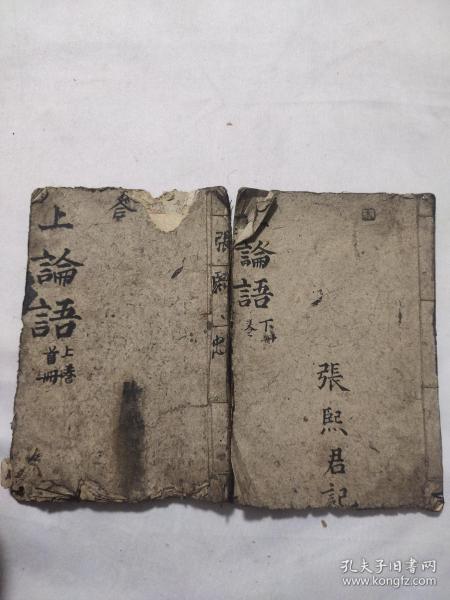 上論語
上卷
首冊
張熙
論語
下冊
張熙君記
孔夫子旧书网
www.kongfz.com